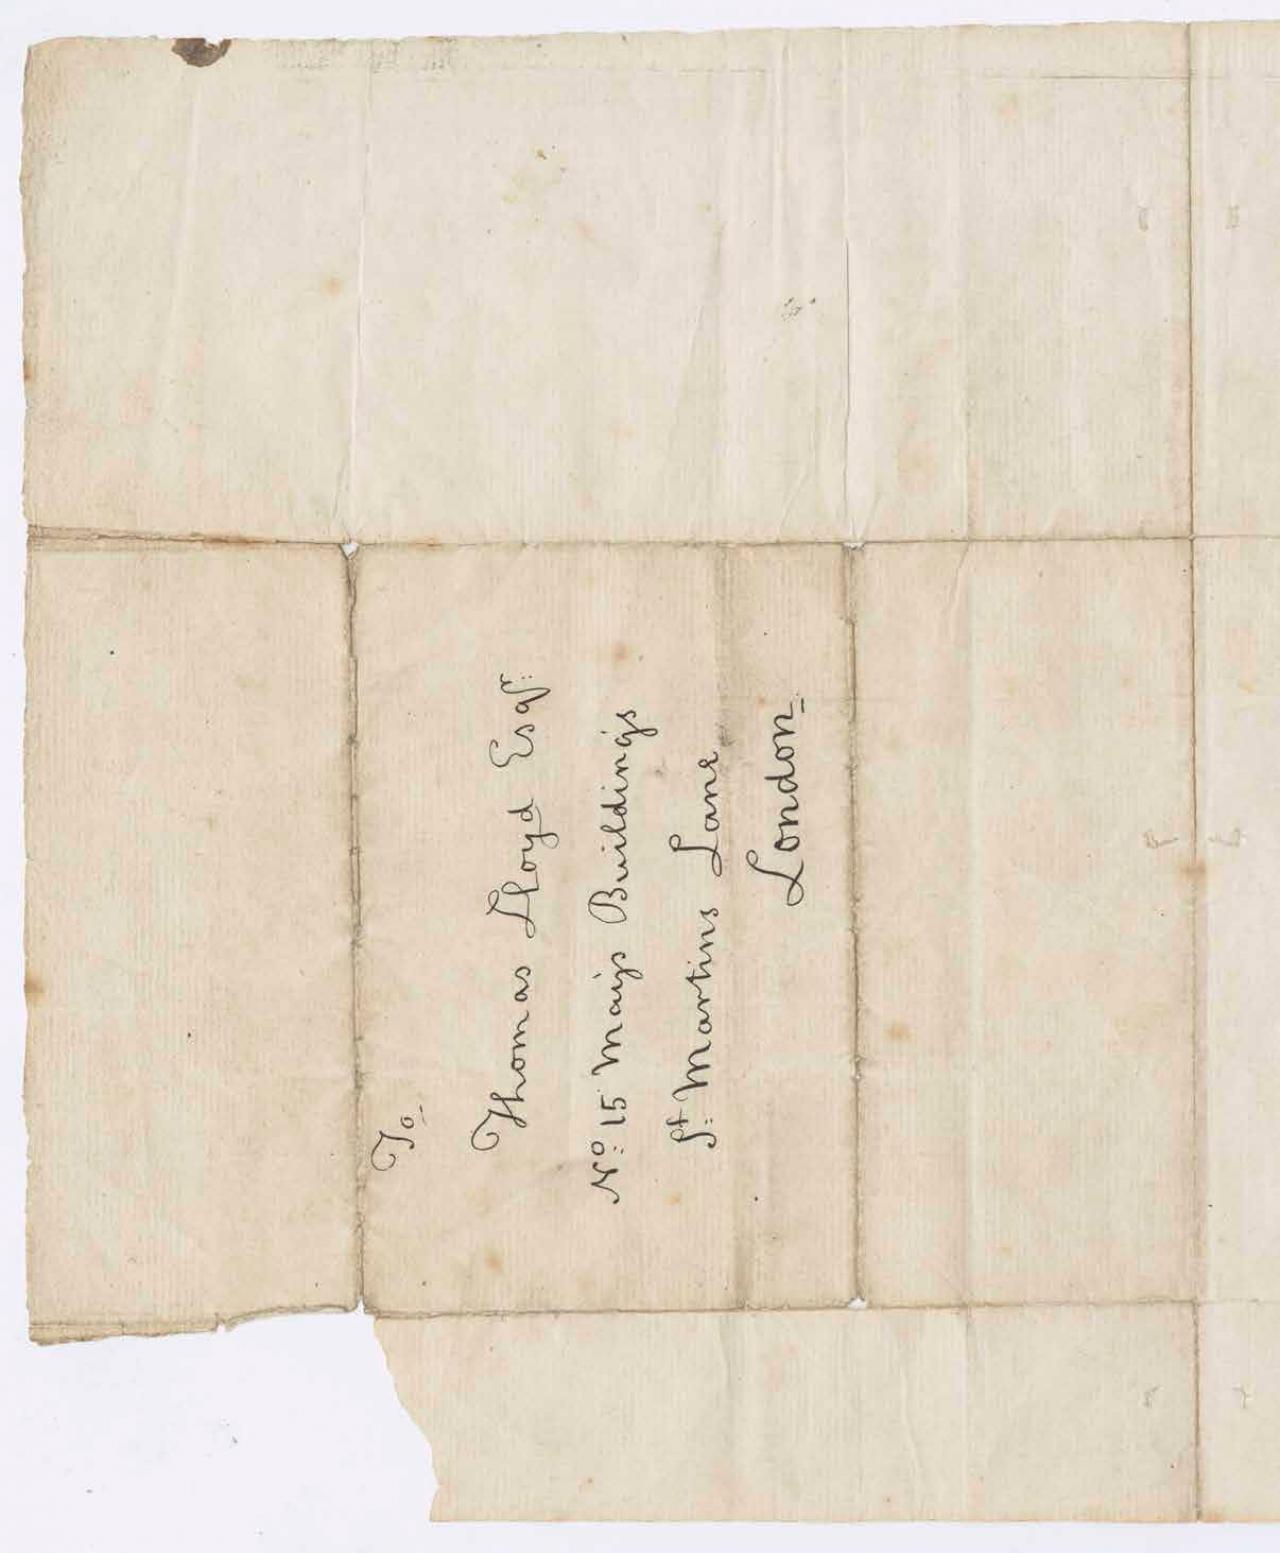 To
Thomas Lloyd Esqr:
No: 15 Mays Buildings
St: Martins Lane
London